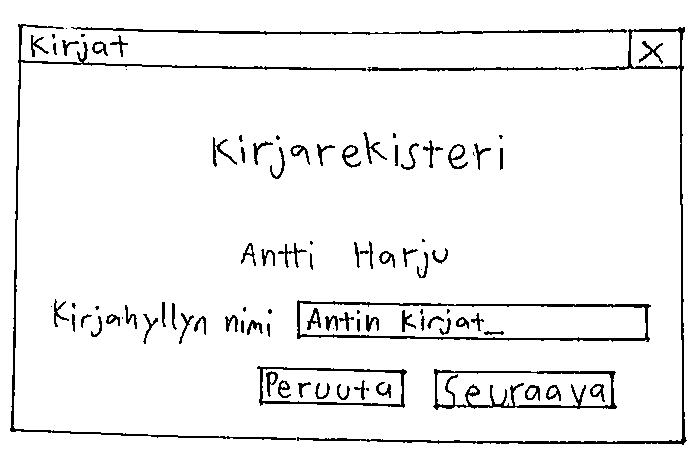 Kirjat X
Kirjarekisteri
Antti Harju
Kirjahyllyn nimi Antin Kirjat_
Peruuta Seuraava